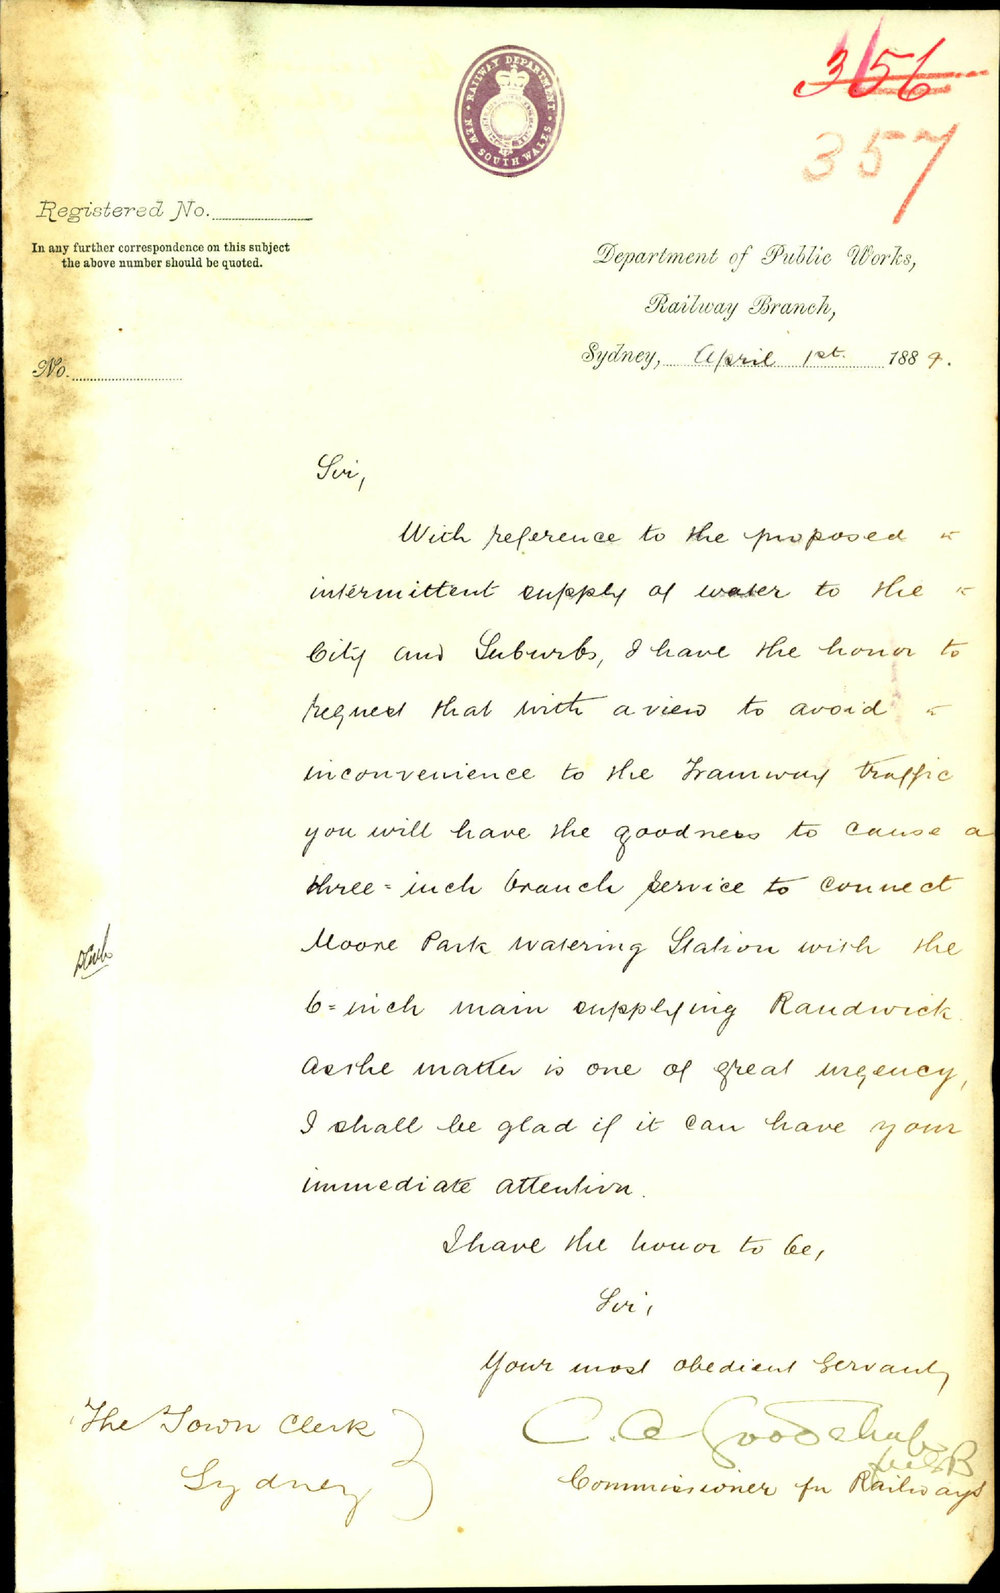 356
357
RAILWAY DEPARTMENT
NEW SOUTH WALES
Registered No.
In any further correspondence on this subject
the above number should be quoted.
Department of Public Works,
Railway Branch,
Sydney, April 1st. 1884.
No.
Sir,
With reference to the proposed
intermittent supply of water to the
City and Suburbs, I have the honor to
request that with a view to avoid
inconvenience to the Tramway traffic
you will have the goodness to cause a
three=inch branch service to connect
Moore Park Watering Station with the
6=inch main supplying Randwick.
As the matter is one of great urgency,
I shall be glad if it can have your
immediate attention.
I have the honor to be,
Sir,
Your most obedient Servant,
C. A. Goodchap
Commissioner for Railways
The Town Clerk
Sydney